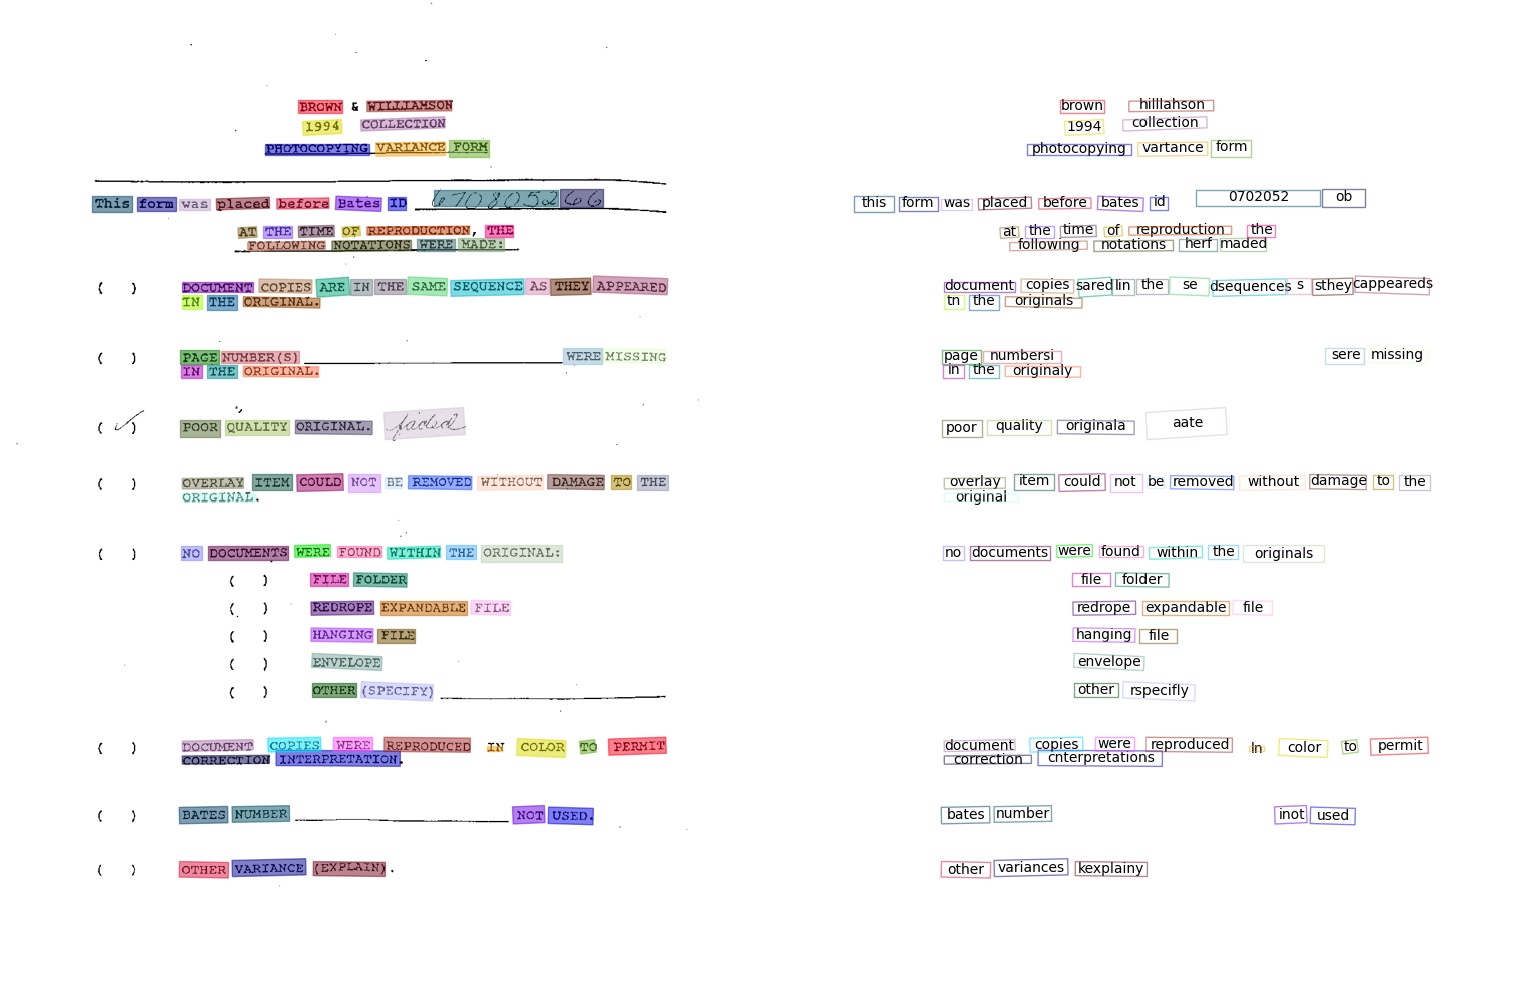 BROWN & WILLIAMSON
1994 COLLECTION
PHOTOCOPYING VARIANCE FORM
This form was placed before Bates ID 670805266
AT THE TIME OF REPRODUCTION, THE
FOLLOWING NOTATIONS WERE MADE:
( ) DOCUMENT COPIES ARE IN THE SAME SEQUENCE AS THEY APPEARED
IN THE ORIGINAL.
( ) PAGE NUMBER(S) ____ WERE MISSING
IN THE ORIGINAL.
( ✓ ) POOR QUALITY ORIGINAL. faded
( ) OVERLAY ITEM COULD NOT BE REMOVED WITHOUT DAMAGE TO THE
ORIGINAL.
( ) NO DOCUMENTS WERE FOUND WITHIN THE ORIGINAL:
( ) FILE FOLDER
( ) REDROPE EXPANDABLE FILE
( ) HANGING FILE
( ) ENVELOPE
( ) OTHER (SPECIFY) ____
( ) DOCUMENT COPIES WERE REPRODUCED IN COLOR TO PERMIT
CORRECTION INTERPRETATION.
( ) BATES NUMBER ____ NOT USED.
( ) OTHER VARIANCE (EXPLAIN).
brown hilllahson
1994 collection
photocopying vartance form
this form was placed before bates id 0702052 ob
at the time of reproduction the
following notations herf maded
document copies sared lin the se dsequences s sthey cappeareds
tn the originals
page numbersi sere missing
in the originaly
poor quality originala aate
overlay item could not be removed without damage to the
original
no documents were found within the originals
file folder
redrope expandable file
hanging file
envelope
other rspecifly
document copies were reproduced in color to permit
correction cnterpretations
bates number inot used
other variances kexplainy